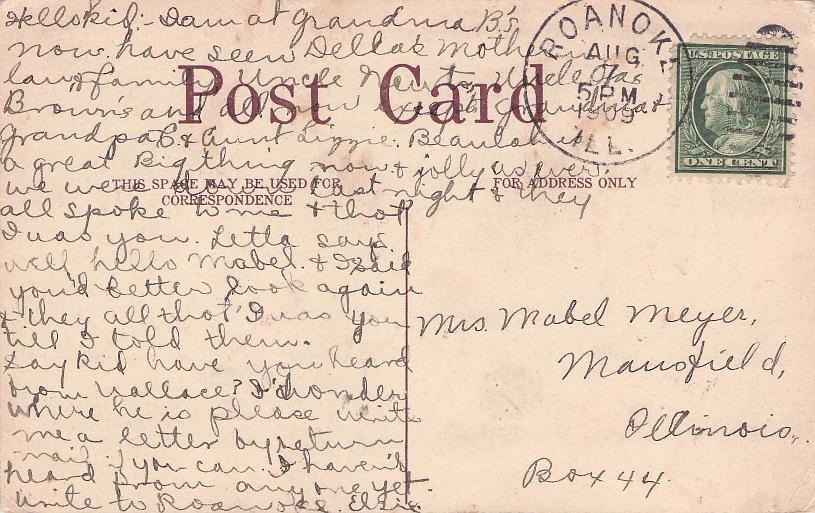 Hello kid. I am at grandma B's
now have seen Della's Mother in
law & family Uncle Newt, Uncle
Brown's and all now except grandma &
grandpa B & Aunt Lizzie. Beaulah is
a great big thing now & jolly as ever.
we were down town last night & they
all spoke to me & thot
I was you. Letta says
well hello Mabel. & I said
you'd better look again
& they all thot I was you
till I told them.
Say kid have you heard
from Wallace? I wonder
where he is please write
me a letter by return
mail if you can. I haven't
heard from anyone yet.
write to Roanoke. Elsie
Post Card
THIS SPACE MAY BE USED FOR
CORRESPONDENCE
FOR ADDRESS ONLY
ROANOKE
AUG
7
5 PM
1909
ILL.
U.S. POSTAGE
ONE CENT
Mrs. Mabel Meyer,
Mansfield,
Illinois,
Box 44.